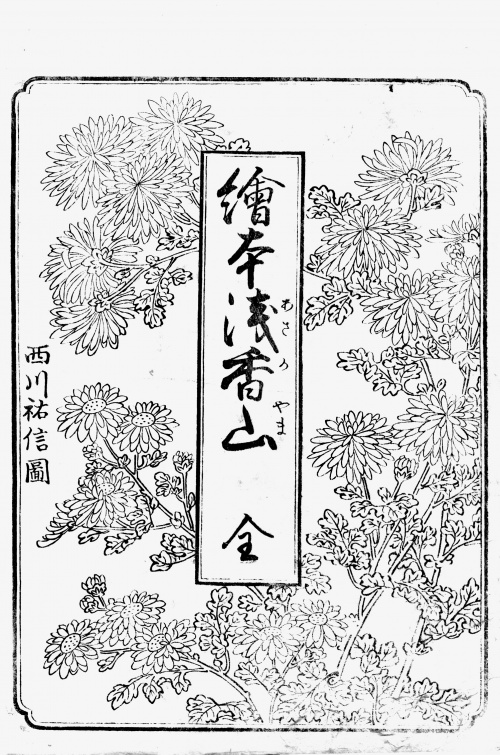 繪本浅香山 全
あさかやま
西川祐信圖